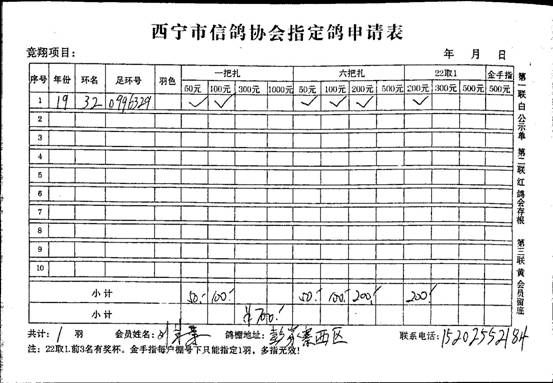 西宁市信鸽协会指定鸽申请表
竞翔项目： 年 月 日
序号 年份 环名 足环号 羽色 一把扎 六把扎 22取1 金手指
50元 100元 300元 1000元 50元 100元 200元 500元 200元 300元 500元 500元
1 19 32 0996329 ✓ ✓ ✓ ✓ ✓ ✓
2
3
4
5
6
7
8
9
10
小计 50.- 100.- 50.- 100.- 200.- 200.-
小计 ¥700.-
共计： 1 羽 会员姓名： 鸽棚地址： 寨西区 联系电话：15202552184
注：22取1.前3名有奖杯。金手指每户棚号下只能指定1羽，多指无效！
第一联 白 公示单 第二联 红 鸽会存根 第三联 黄 会员留底